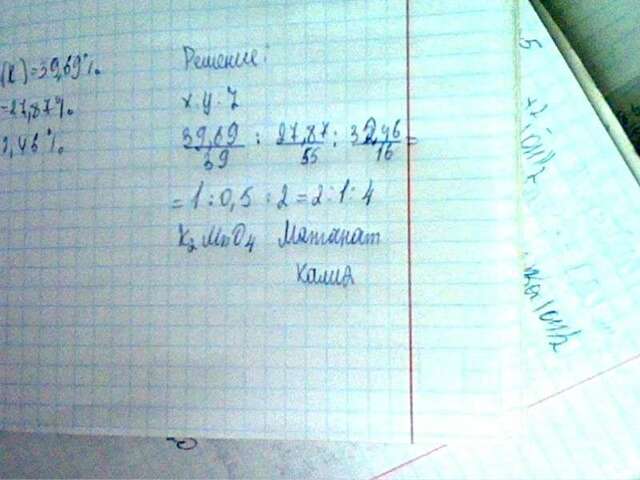 (K)=39,69%
=27,87%
Решение:
x:y:z
39,69/39 : 27,87/55 : 32,46/16 =
=1:0,5:2=2:1:4
K₂MnO₄ Манганат
калия
5